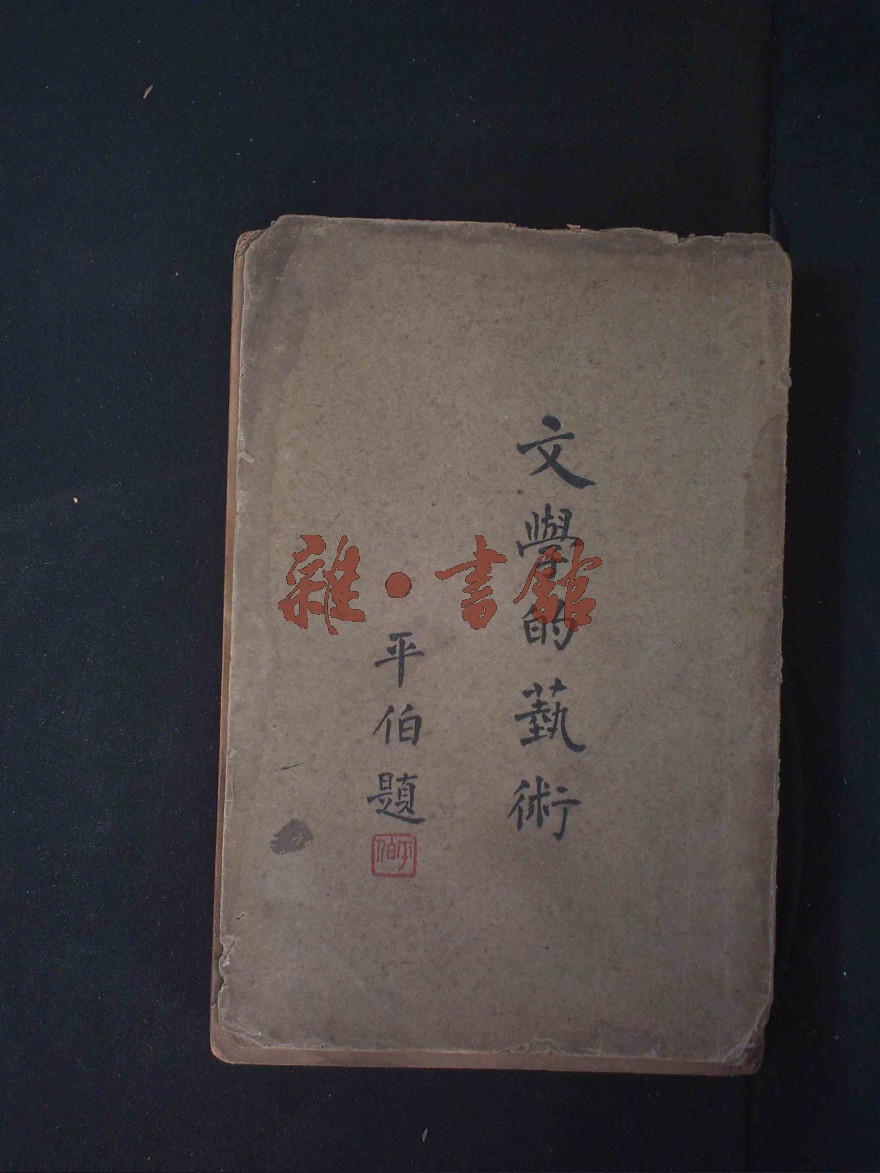 文學的藝術
平伯題
平伯
雜·書館